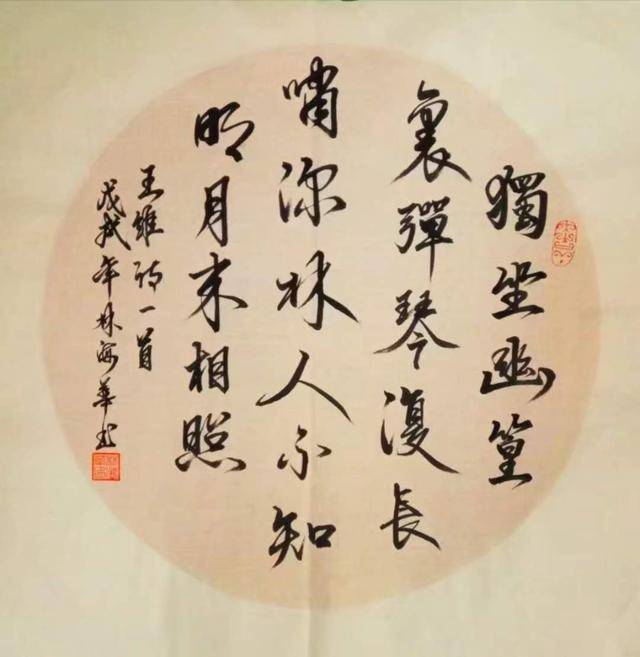 獨坐幽篁
裏彈琴復長
嘯深林人不知
明月来相照
王維詩一首
戊戌年林海華书